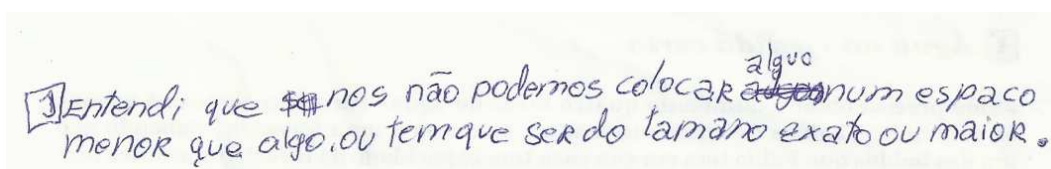 1 Entendi que nos não podemos colocar alguo num espaco
menor que algo. ou tem que ser do tamano exato ou maior.